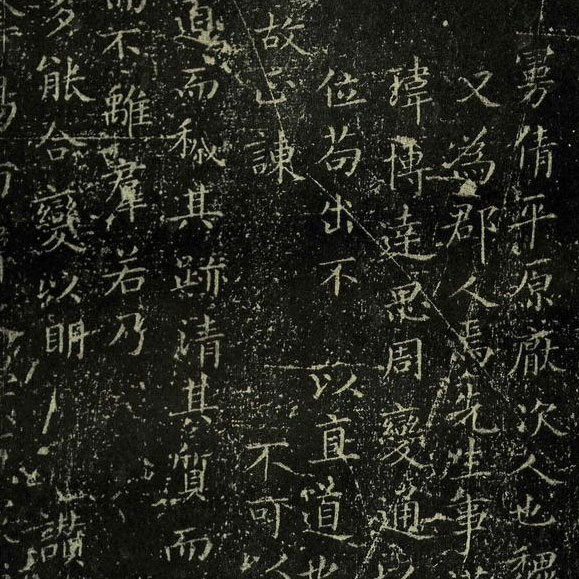 曼倩平原厭次人也魏
又為郡人焉先生事
瑋博達思周變通以
位苟出不 以直道也
故正諫 不可以
道而穢其跡清其質而
而不離羣若乃
多能合變以明 讚